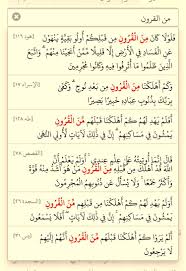 من القرون
فَلَوْلَا كَانَ مِنَ الْقُرُونِ مِن قَبْلِكُمْ أُولُو بَقِيَّةٍ يَنْهَوْنَ [هود ١١٦]
عَنِ الْفَسَادِ فِي الْأَرْضِ إِلَّا قَلِيلًا مِّمَّنْ أَنجَيْنَا مِنْهُمْ وَاتَّبَعَ
الَّذِينَ ظَلَمُوا مَا أُتْرِفُوا فِيهِ وَكَانُوا مُجْرِمِينَ
وَكَمْ أَهْلَكْنَا مِنَ الْقُرُونِ مِن بَعْدِ نُوحٍ وَكَفَىٰ [الإسراء ١٧]
بِرَبِّكَ بِذُنُوبِ عِبَادِهِ خَبِيرًا بَصِيرًا
أَفَلَمْ يَهْدِ لَهُمْ كَمْ أَهْلَكْنَا قَبْلَهُم مِّنَ الْقُرُونِ [طه ١٢٨]
يَمْشُونَ فِي مَسَاكِنِهِمْ إِنَّ فِي ذَٰلِكَ لَآيَاتٍ لِّأُولِي النُّهَىٰ
قَالَ إِنَّمَا أُوتِيتُهُ عَلَىٰ عِلْمٍ عِندِي أَوَلَمْ يَعْلَمْ أَنَّ [القصص ٧٨]
اللَّهَ قَدْ أَهْلَكَ مِن قَبْلِهِ مِنَ الْقُرُونِ مَنْ هُوَ أَشَدُّ مِنْهُ قُوَّةً
وَأَكْثَرُ جَمْعًا وَلَا يُسْأَلُ عَن ذُنُوبِهِمُ الْمُجْرِمُونَ
أَوَلَمْ يَهْدِ لَهُمْ كَمْ أَهْلَكْنَا مِن قَبْلِهِم مِّنَ الْقُرُونِ [السجدة ٢٦]
يَمْشُونَ فِي مَسَاكِنِهِمْ إِنَّ فِي ذَٰلِكَ لَآيَاتٍ أَفَلَا يَسْمَعُونَ
أَلَمْ يَرَوْا كَمْ أَهْلَكْنَا قَبْلَهُم مِّنَ الْقُرُونِ أَنَّهُمْ إِلَيْهِمْ [يس ٣١]
لَا يَرْجِعُونَ